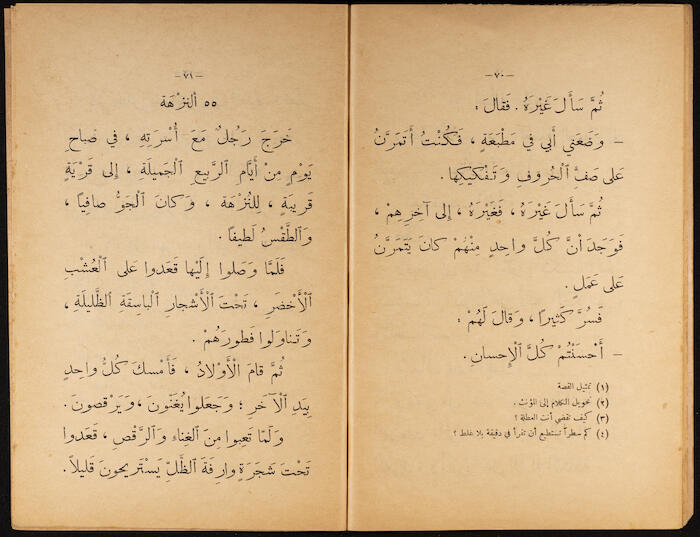 -٧٠-
ثُمَّ سَأَلَ غَيْرَهُ . فَقَالَ :
– وَضَعَنِي أَبِي فِي مَطْبَعَةٍ ، فَكُنْتُ أَتَمَرَّنُ
عَلَى صَفِّ ٱلْحُرُوفِ وَتَفْكِيكِهَا .
ثُمَّ سَأَلَ غَيْرَهُ ، فَغَيْرَهُ ، إِلَى آخِرِهِمْ ،
فَوَجَدَ أَنَّ كُلَّ وَاحِدٍ مِنْهُمْ كَانَ يَتَمَرَّنُ
عَلَى عَمَلٍ .
فَسُرَّ كَثِيرًا ، وَقَالَ لَهُمْ :
– أَحْسَنْتُمْ كُلَّ ٱلْإِحْسَانِ .
(١) تمثيل القصة
(٢) تحويل الكلام إلى المؤنث .
(٣) كيف تقضي أنت العطلة ؟
(٤) كم سطراً تستطيع أن تقرأ في دقيقة بلا غلط ؟
-٧١-
٥٥ ٱلنُّزْهَة
خَرَجَ رَجُلٌ مَعَ أُسْرَتِهِ ، فِي صَبَاحِ
يَوْمٍ مِنْ أَيَّامِ ٱلرَّبِيعِ ٱلْجَمِيلَةِ ، إِلَى قَرْيَةٍ
قَرِيبَةٍ ، لِلنُّزْهَةِ ، وَكَانَ ٱلْجَوُّ صَافِيًا ،
وَٱلطَّقْسُ لَطِيفًا .
فَلَمَّا وَصَلُوا إِلَيْهَا قَعَدُوا عَلَى ٱلْعُشْبِ
ٱلْأَخْضَرِ ، تَحْتَ ٱلْأَشْجَارِ ٱلْبَاسِقَةِ ٱلظَّلِيلَةِ ،
وَتَنَاوَلُوا فَطُورَهُمْ .
ثُمَّ قَامَ ٱلْأَوْلَادُ ، فَأَمْسَكَ كُلُّ وَاحِدٍ
بِيَدِ ٱلْآخَرِ ؛ وَجَعَلُوا يُغَنُّونَ ، وَيَرْقُصُونَ .
وَلَمَّا تَعِبُوا مِنَ ٱلْغِنَاءِ وَٱلرَّقْصِ ، قَعَدُوا
تَحْتَ شَجَرَةٍ وَارِفَةِ ٱلظِّلِّ يَسْتَرِيحُونَ قَلِيلًا .